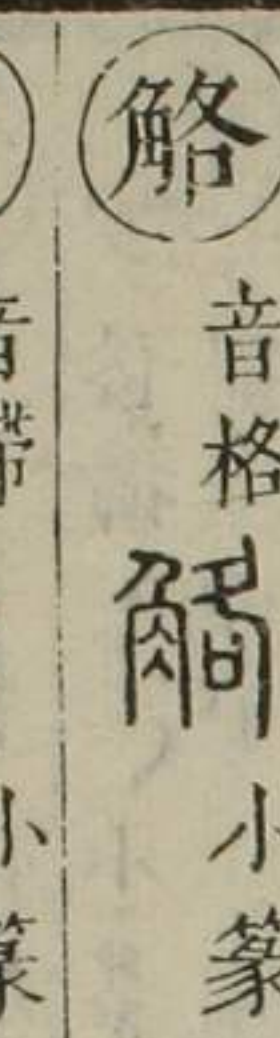 觡音格觡小篆
音帶小篆